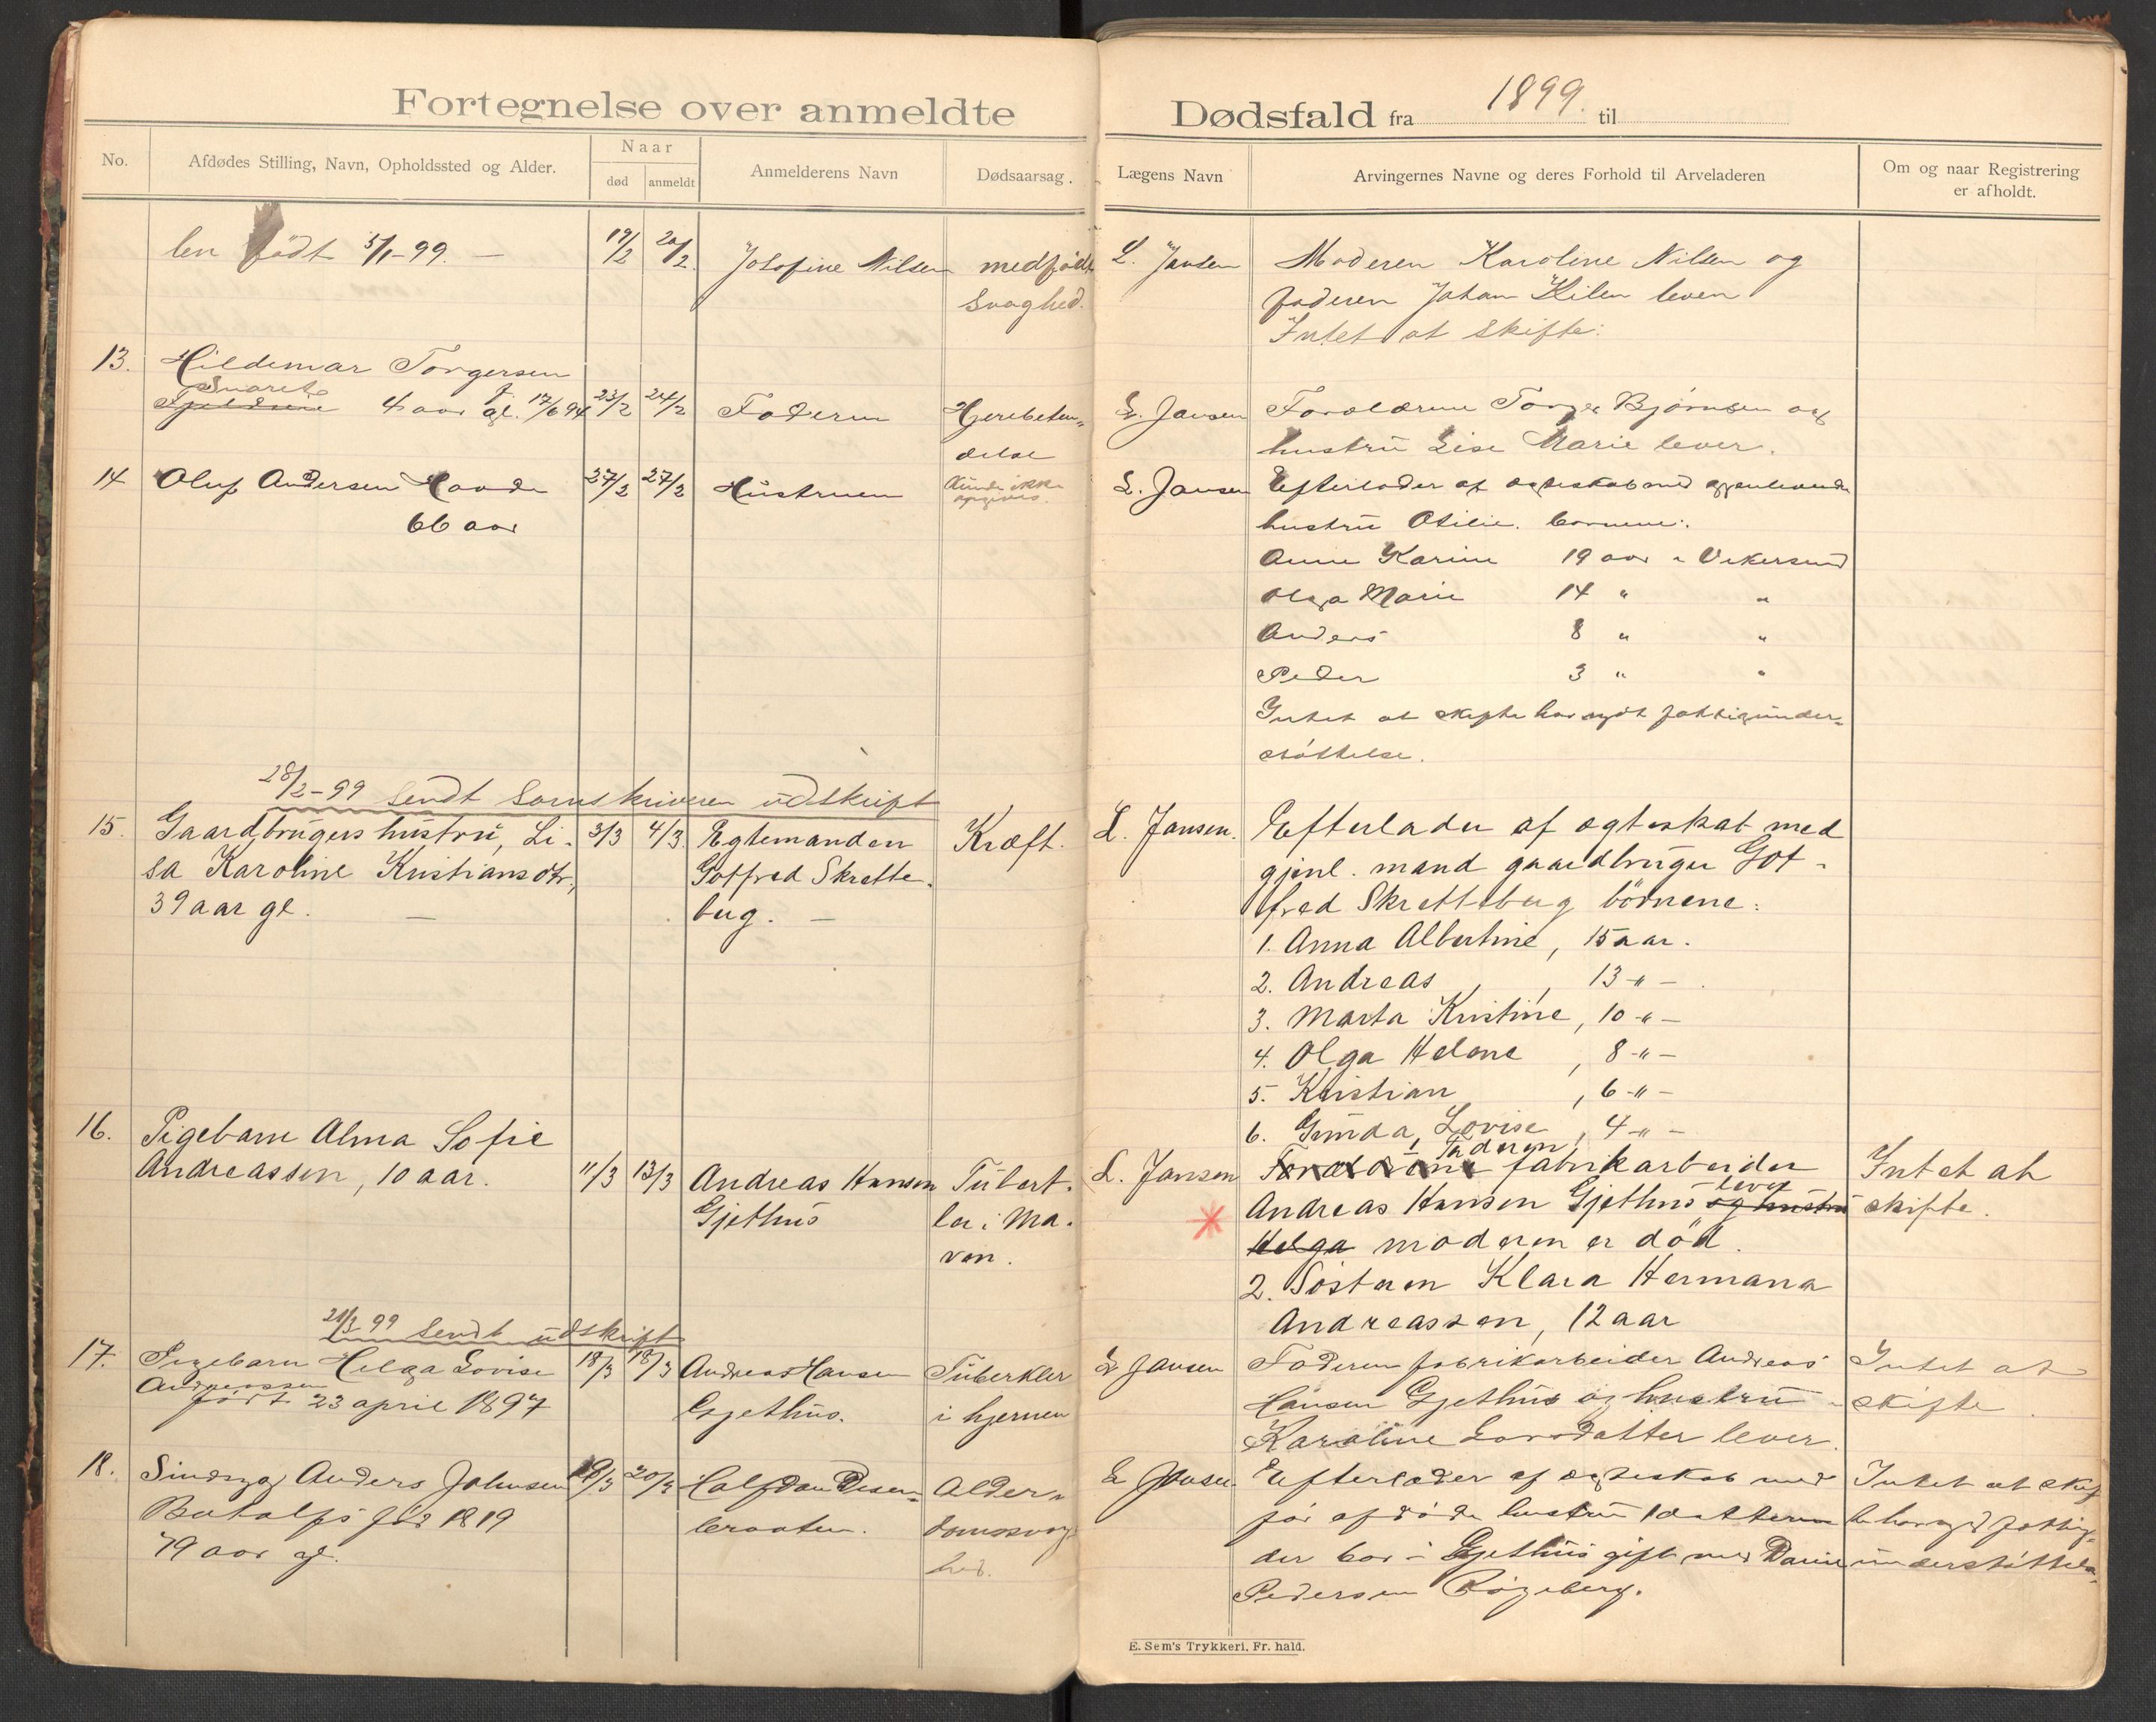 Fortegnelse over anmeldte
No.
Afdødes Stilling, Navn, Opholdssted og Alder.
Naar
død
anmeldt
Anmelderens Navn
Dødsaarsag.
len født 5/1-99. —
19/2
20/2
Josefine Nilsen
medfødt
Svaghed.
13.
Hildemar Torgersen
Svarets
4 aar gl. f. 17/6 94
23/2
24/2
Faderen
Hjerebeten-
delse
14
Oluf Andersen Hovde
66 aar
27/2
27/2
Hustruen
Kunde ikke
opgives.
28/2-99 Sendt Sornskriveren udskrift
15.
Gaardbrugers hustru, Li-
sa Karoline Kristiansdtr.,
39 aar gl. —
3/3
4/3
Egtemanden
Gotfred Skrette-
berg. —
Kræft.
16.
Pigebarn Alma Sofie
Andreassen, 10 aar.
11/3
13/3
Andreas Hansen
Gjethus
Tubert.
ler i Ma-
ven.
21/3 99 Sendt udskrift
17.
Pigebarn Helga Lovise
Andreassen
født 23 april 1897
18/3
18/3
Andreas Hansen
Gjethus.
Tuberkler
i hjernen
18.
Sindsyg Anders Johnsen
Botolfs født 1819
79 aar gl.
19/3
20/3
Halfdan Disen-
braaten.
Alder-
domssvag-
hed.
Dødsfald fra 1899. til
Lægens Navn
Arvingernes Navne og deres Forhold til Arveladeren
Om og naar Registrering
er afholdt.
L. Jansen
Moderen Karoline Nilsen og
faderen Johan Kilen leven
Intet at skifte.
L. Jansen
Forældrene Torger Bjørnsen og
hustru Lise Marie lever.
L. Jansen
Efterlader af ægteskab med gjenlevende
hustru Otilie. børnene:
Anne Karine 19 aar - Vikersund
Olga Marie 14 " "
Anders 8 " "
Peder 3 " "
Intet at skifte har nydt fattigunder-
støttelse.
L. Jansen.
Efterlader af ægteskab med
gjenl. mand gaardbruger Got-
fred Skretteberg børnene:
1. Anna Albertine, 15 aar.
2. Andreas , 13 -"-
3. Marta Kristine, 10 -"-
4. Olga Helene , 8 -"-
5. Kristian , 6 -"-
6. Gunda Lovise, 4 -"-
L. Jansen
Forældrene 1 Faderen fabrikarbeider
Andreas Hansen Gjethus lever og hustru
Helga moderen er död.
2. Søsteren Klara Hermana
Andreassen, 12 aar
Intet at
skifte.
L Jansen
Faderen fabrikarbeider Andreas
Hansen Gjethus og hustru
Karoline Larsdatter lever.
Intet at
skifte.
L Jansen.
Efterlader af ægteskab med
før afdøde hustru 1 datteren
der bor i Gjethus gift med Daniel
Pedersen Røgeberg.
Intet at skif
te har nyd fattig-
understøttelse
E. Sem's Trykkeri, Fr. hald.